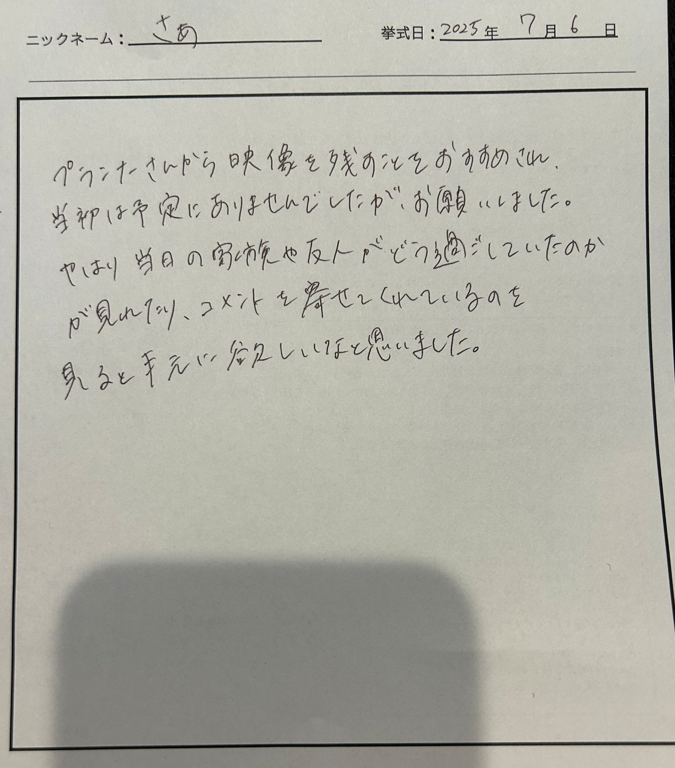 ニックネーム： さあ 挙式日：2025年 7月 6日
プランナーさんから映像を残すことをおすすめされ、
当初は予定にありませんでしたが、お願いしました。
やはり当日の家族や友人がどう過ごしていたのか
が見れたり、コメントを寄せてくれているのを
見ると手元に欲しいなと思いました。